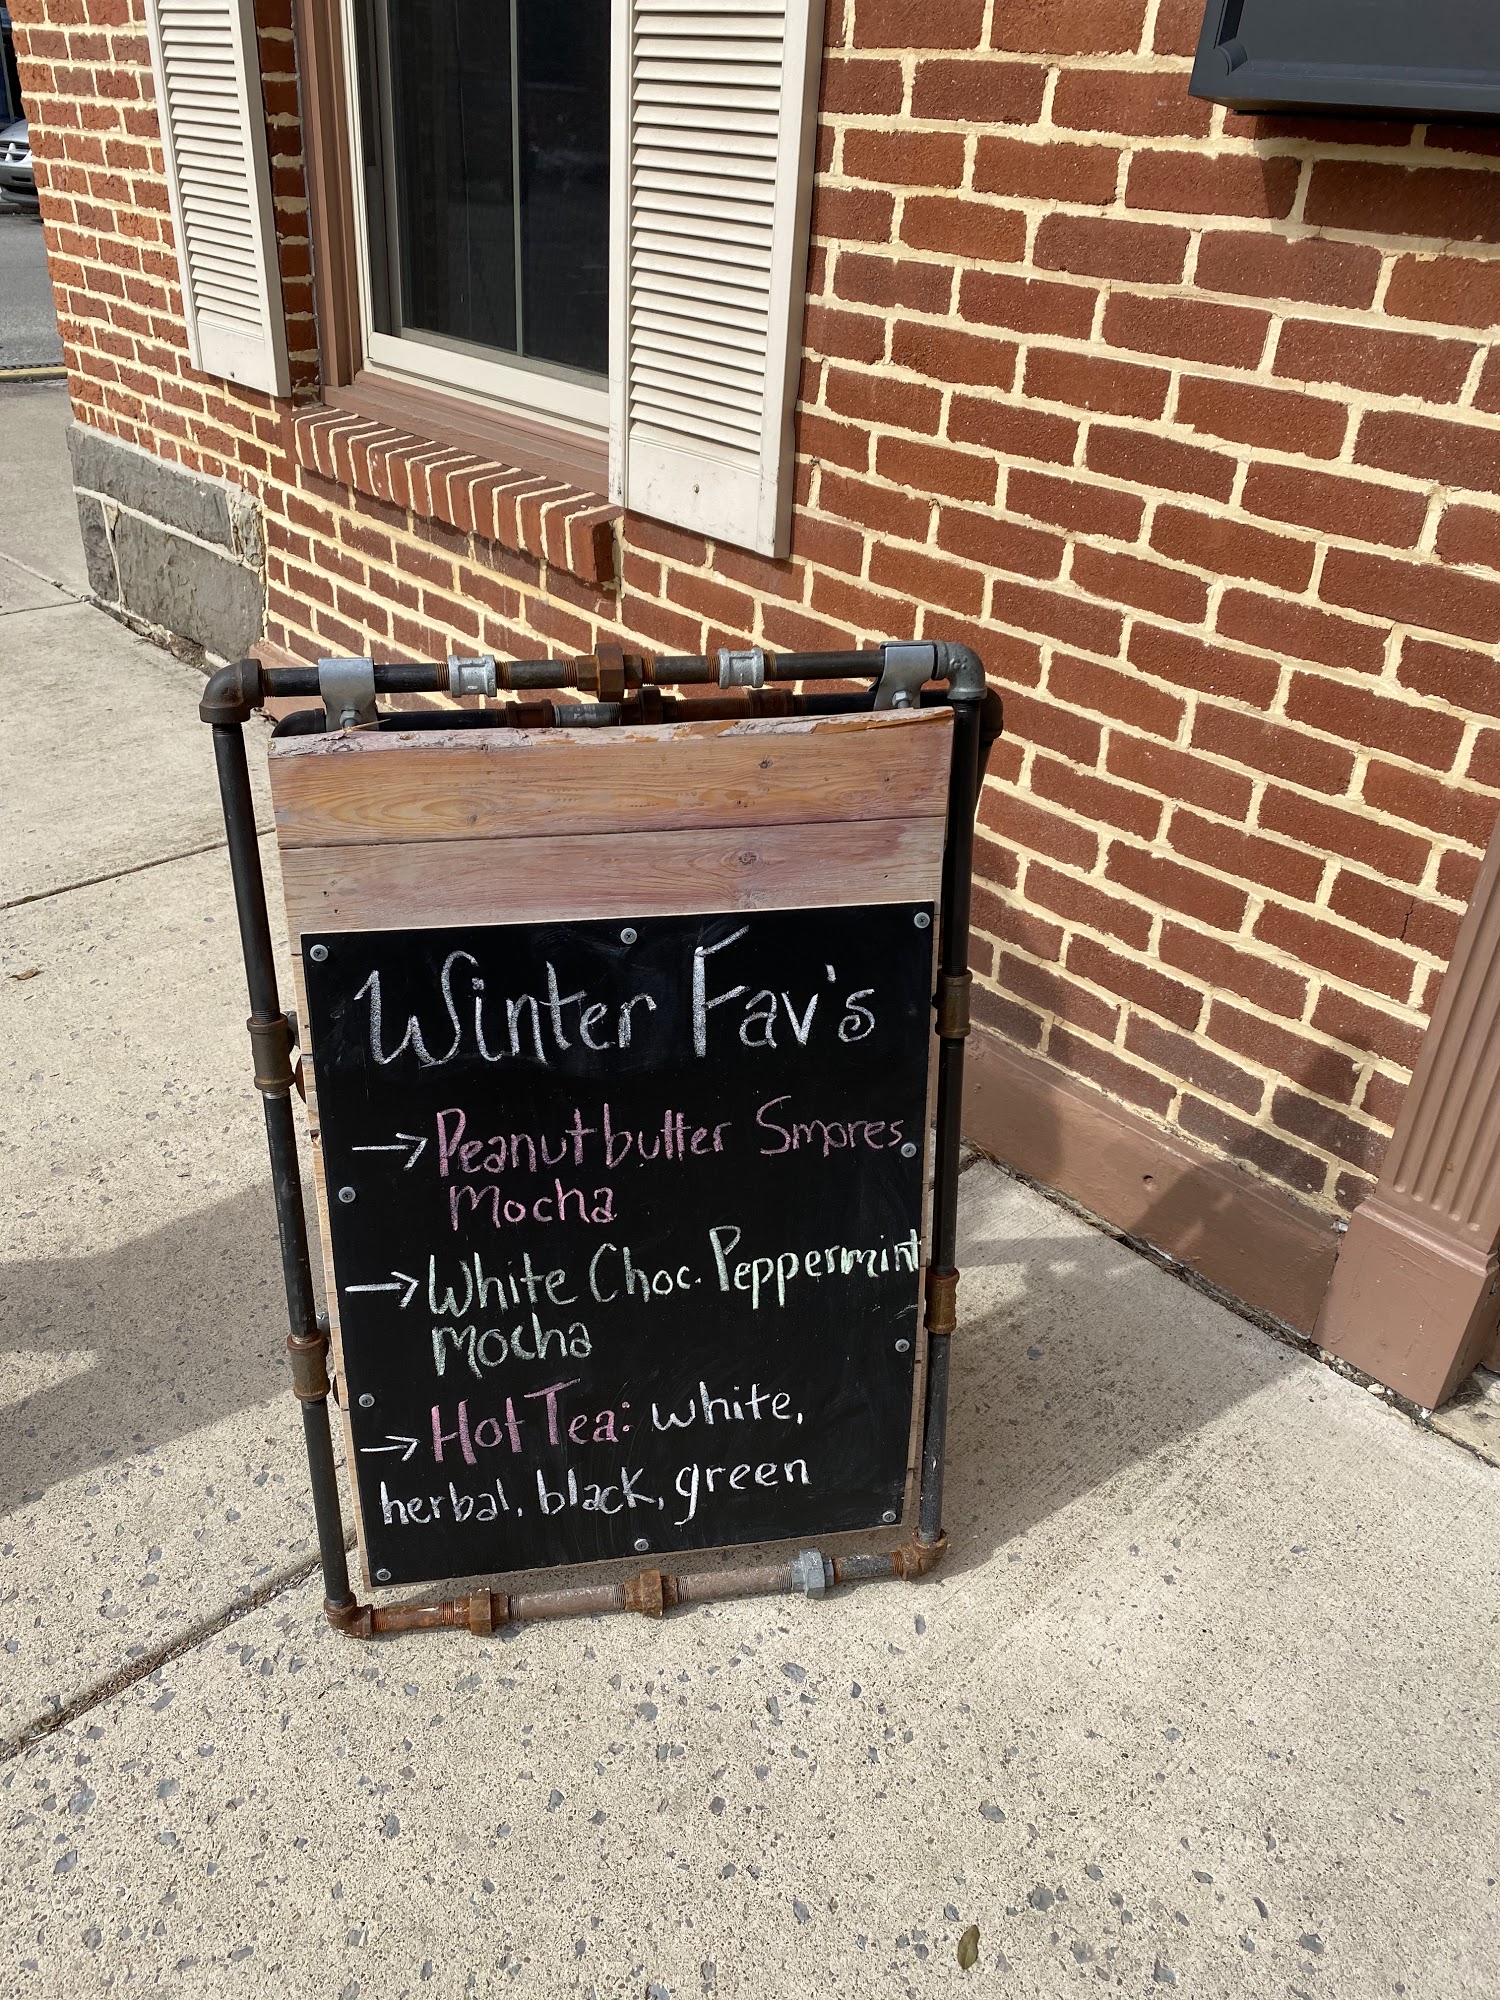 Winter Fav's
→Peanutbutter Smores
Mocha
→White Choc. Peppermint
Mocha
→Hot Tea: white,
herbal, black, green